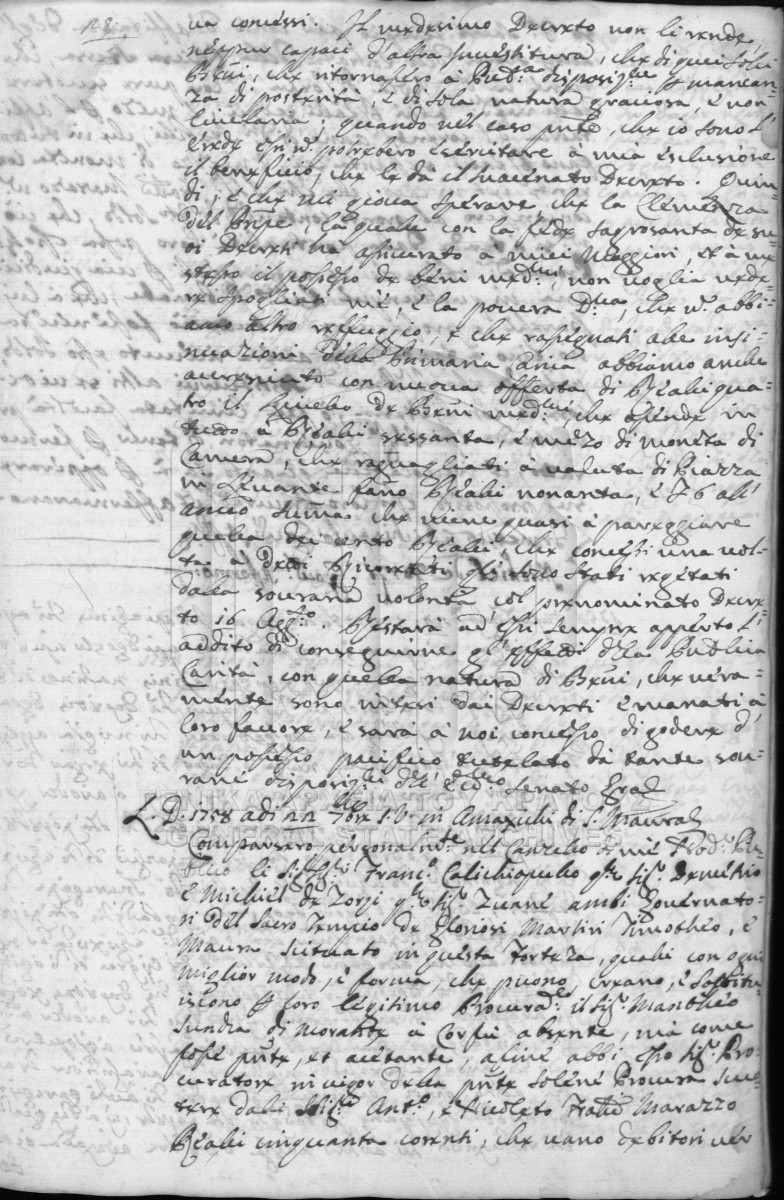 va concessi. Il medesimo Decreto non li rende
neppur capaci d'altra Investitura, che di quei soli
Beni, che ritornassero à Pub.ca disposiz.ne p mancan-
za di posterità, e di sola natura graciosa, e non
livelaria; quando nel caso pnte, che io sono l'
erede essi n. potrebbero esercitare à mia esclusione
il beneficio, che le dà il sucenato Decreto. Quin-
di, e che mi giova sperare che la Clemenza
del Prnpe, la quale con la fede sagrosanta de su-
oi Decreti hà assicurato à miei Maggiori, et à me
stesso il possesso de beni med.mi, non voglia vede-
re spogliati mè, e la povera D.na, che n. abbi-
amo altro reffuggio, e che rassegnati ale insi-
nuazioni della Primaria Carica abbiamo anche
accresciuto con nuova offerta di Reali qua-
tro il Livello de Beni med.mi, che ascende in
tutto à Reali sessanta, e mezo di moneta di
Camera, che raguagliati à valuta di Piazza
in Levante fano Reali nonanta, e 76 all'
anno suma che viene quasi à pareggiare
quella dei cento Reali, che concessi una vol-
ta à detti Ricorrenti gli sono stati regetati
dalla sourana volontà col prenominato Decre-
to 16 Ag.to. Resterà ad essi sempre apperto l'
addito di conseguirne gl'effetti della Publica
Carità, con quella natura di Beni, che vera-
mente sono intesi dai Decreti emanati à
loro favore, e sarà à noi concesso di godere d'
un possesso pacifico tutelato dà tante sou-
rane disposiz.ni dell' Ecc.mo Senato Graē
L. D. 1758 adi 22 7bre S.V. in Amaxichi di S. Maura
Comparsero personalm.te nell Cancello di me Nod.o Pu-
blico li Sig.ri Franc.o Calichiopulo q.m Sig. Demetrio
e Michiel de Zorzi q.m Sig. Zuane ambi Governato-
ri del Sacro Tempio de Gloriosi Martiri Timotheo, e
Maura scituato in questa Fortezza, quali con ogni
miglior modo, e forma, che puono, creano, e sostitu-
iscono p loro legitimo Procurad.r il Sig. Mantheo
Sundia di Morahte à Corfù absente, mà come
fosse pnte, et acetante, a fine abbi esso Sig. Pro-
curatore in vigor della pnte solene Procura scuo-
tere dali Sig.ri Ant.o, e Nicoleto Fralli Marazzo
Reali cinquanta correnti, che vano debitori ver